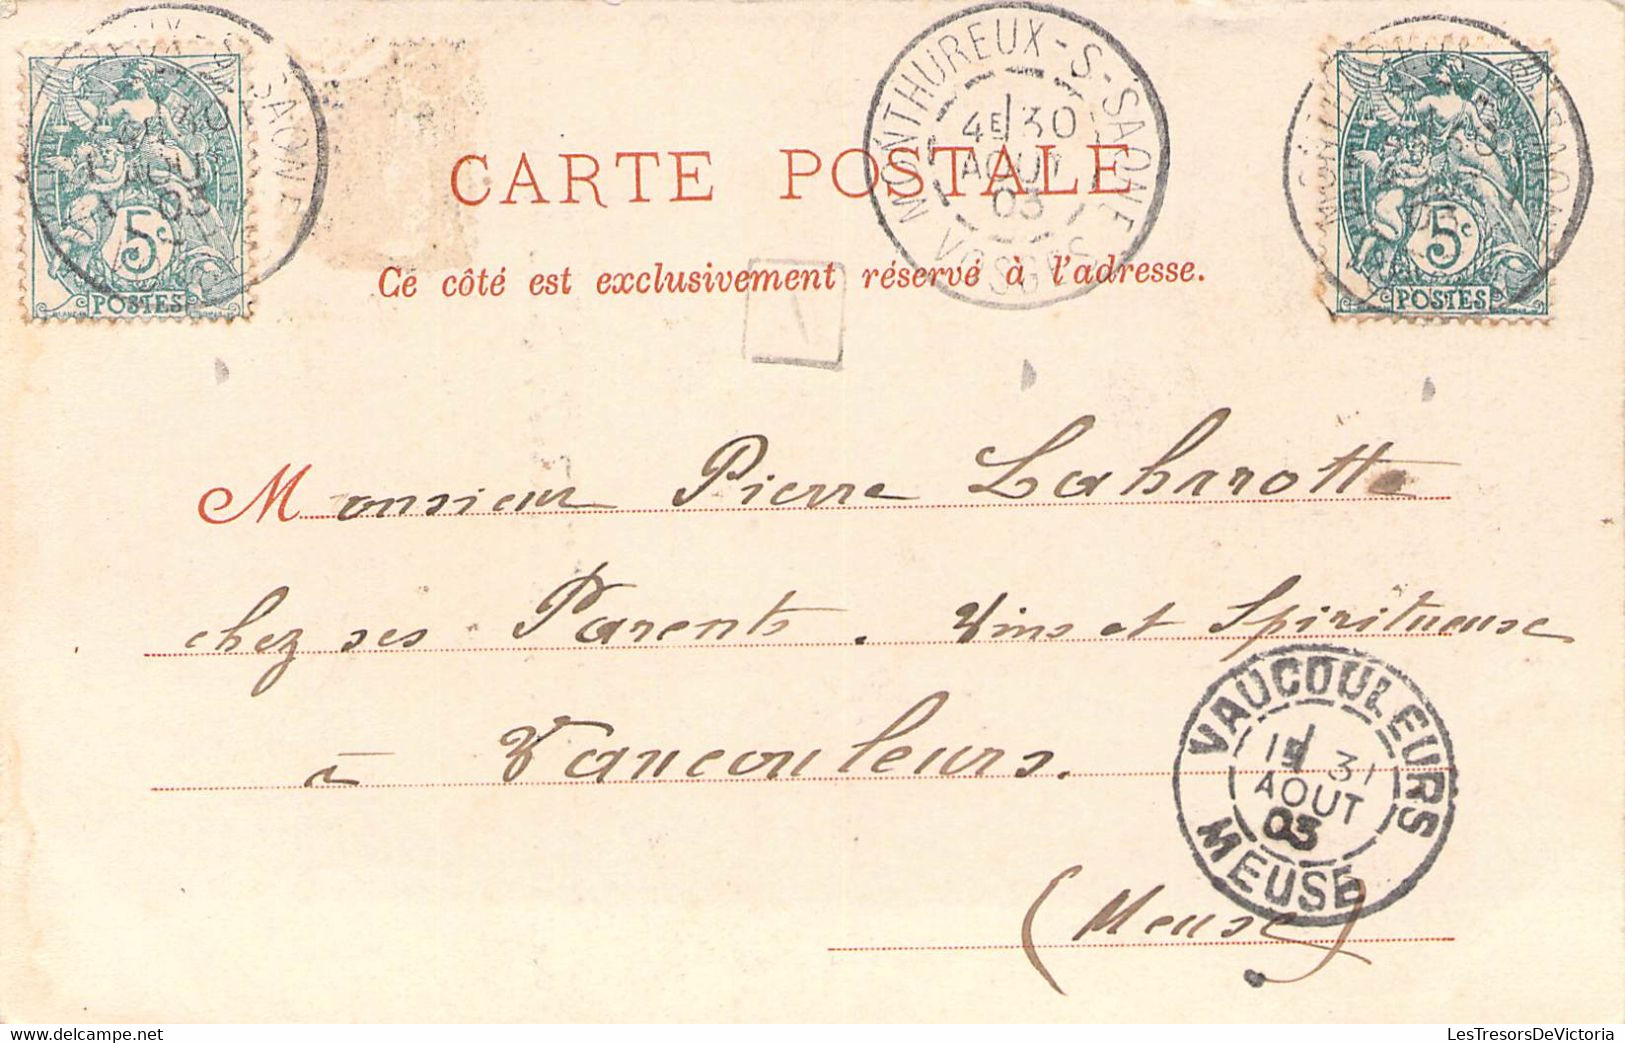 CARTE POSTALE
Ce côté est exclusivement réservé à l'adresse.
MONTHUREUX-S-SAONE
4E 30
AOUT
03
VOSGES
5c
POSTES
5c
POSTES
Monsieur Pierre Laharotte
chez ses Parents. Vins et Spiritueuse
à Vaucouleurs.
(Meuse)
VAUCOULEURS
1E 31
AOUT
03
MEUSE
LesTresorsDeVictoria